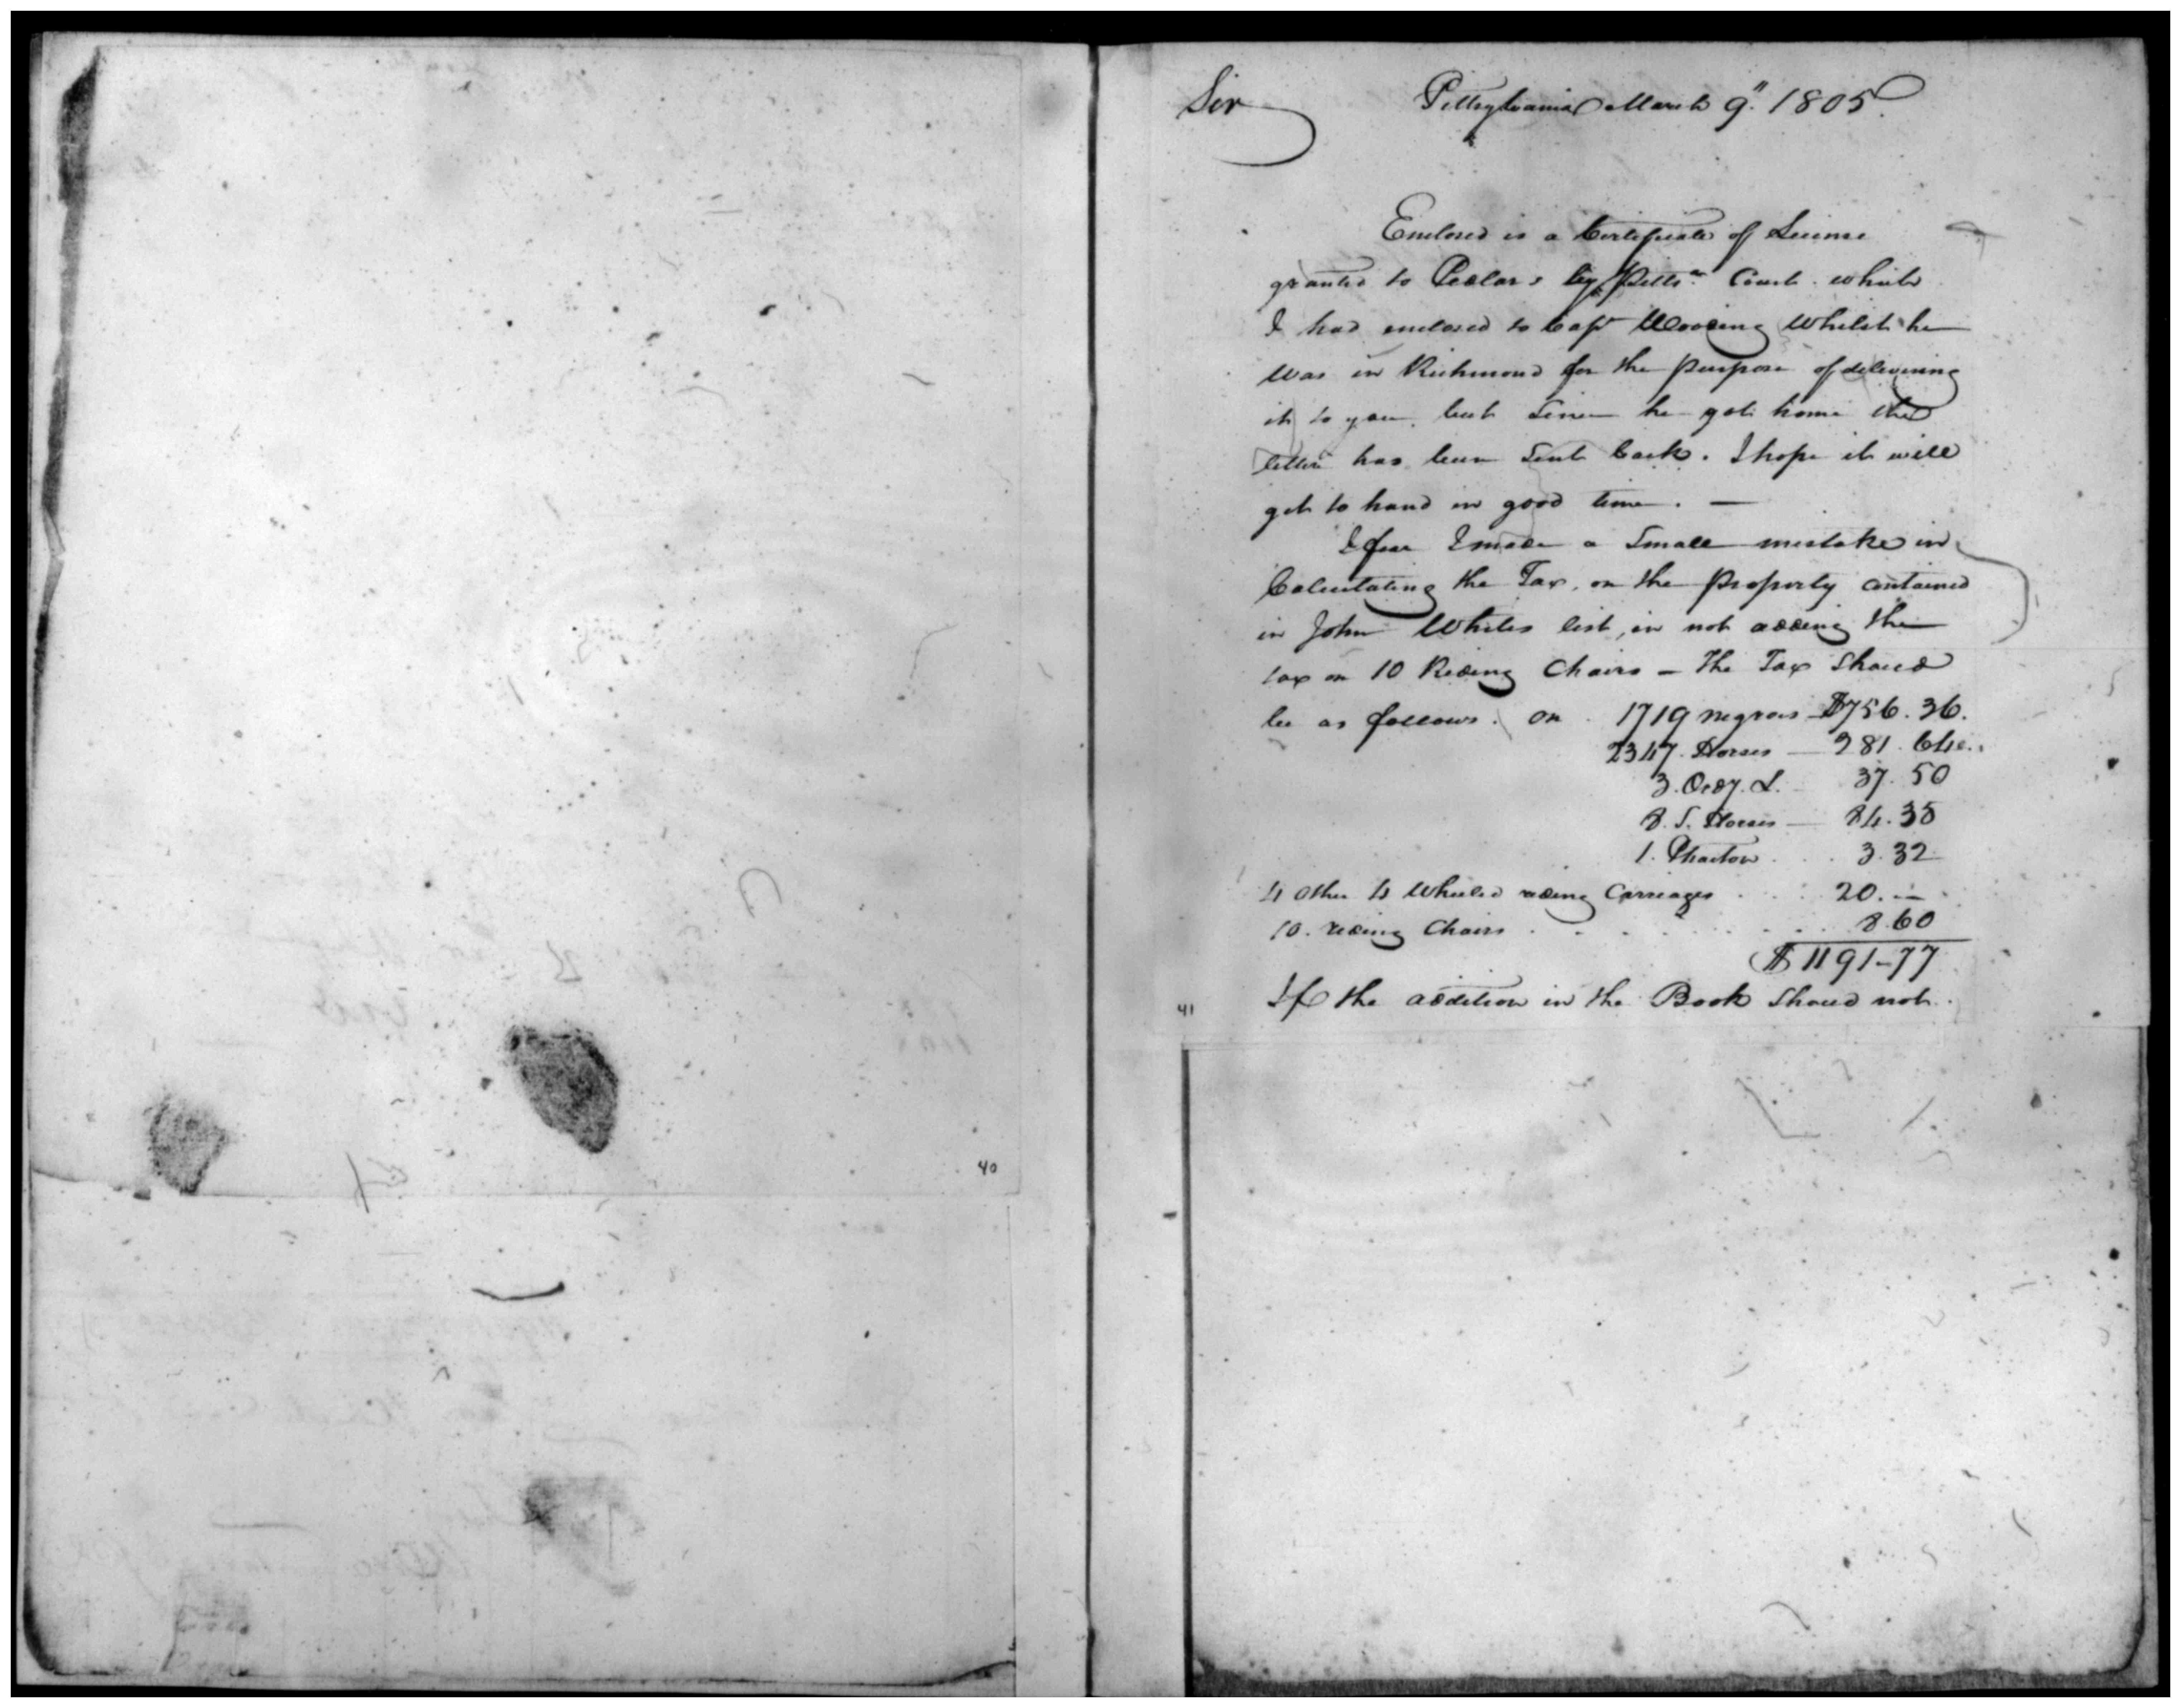 40
Sir Pittsylvania March 9" 1805.
Enclosed is a Certificate of License
granted to Pedlars by Pittsa. Court which
I had enclosed to Capt Wooding Whilst he
Was in Richmond for the purpose of delivering
it to you, but Since he got home the
letter has been Sent back. I hope it will
get to hand in good time. —
I fear I made a Small mistake in
Calculating the Tax, on the property contained
in John Whites list, in not adding the
tax on 10 Riding Chairs — The Tax Should
be as follows. On 1719 negroes — $756.36.
2347 Horses — 281.64
3. Ordy. L. 37.50
8. S. Horses — 84.35
1. Phaeton . . 3.32
4 Other 4 Wheeled riding Carriages . . 20. —
10. riding Chairs . . . . . 8.60
$1191-77
If the addition in the Book Should not
41